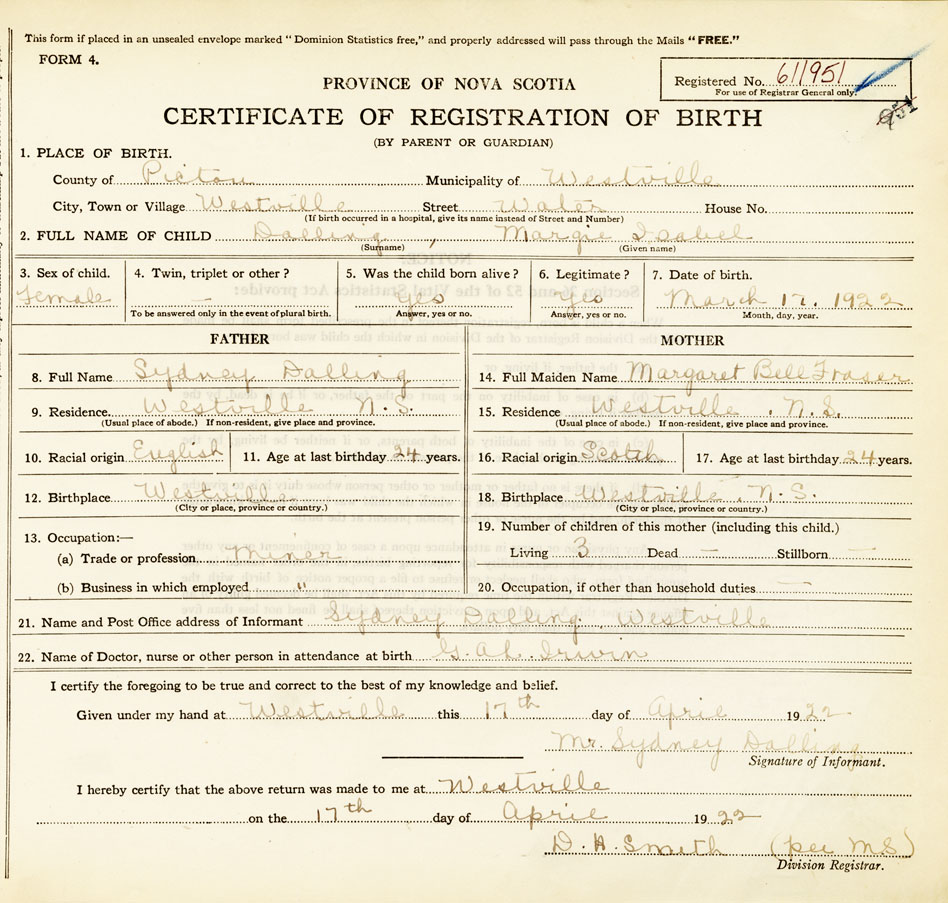 This form if placed in an unsealed envelope marked "Dominion Statistics free," and properly addressed will pass through the Mails "FREE."
FORM 4.
PROVINCE OF NOVA SCOTIA
Registered No. 611951
For use of Registrar General only.
951
CERTIFICATE OF REGISTRATION OF BIRTH
(BY PARENT OR GUARDIAN)
1. PLACE OF BIRTH.
County of Pictou Municipality of Westville
City, Town or Village Westville Street Water House No.
(If birth occurred in a hospital, give its name instead of Street and Number)
2. FULL NAME OF CHILD Dalling , Margie Isabel
(Surname) (Given name)
3. Sex of child. 4. Twin, triplet or other? 5. Was the child born alive? 6. Legitimate? 7. Date of birth.
Female — Yes Yes March 17. 1922
To be answered only in the event of plural birth. Answer, yes or no. Answer, yes or no. Month, day, year.
FATHER MOTHER
8. Full Name Sydney Dalling 14. Full Maiden Name Margaret Bell Fraser
9. Residence. Westville N.S. 15. Residence Westville . N.S.
(Usual place of abode.) If non-resident, give place and province. (Usual place of abode.) If non-resident, give place and province.
10. Racial origin English 11. Age at last birthday 24 years. 16. Racial origin Scotch 17. Age at last birthday 24 years.
12. Birthplace Westville 18. Birthplace Westville . N.S.
(City or place, province or country.) (City or place, province or country.)
19. Number of children of this mother (including this child.)
13. Occupation:—
(a) Trade or profession Miner Living 3 Dead — Stillborn —
(b) Business in which employed " 20. Occupation, if other than household duties —
21. Name and Post Office address of Informant Sydney Dalling Westville
22. Name of Doctor, nurse or other person in attendance at birth Irwin
I certify the foregoing to be true and correct to the best of my knowledge and belief.
Given under my hand at Westville this 17th day of April 1922
Mr. Sydney Dalling
Signature of Informant.
I hereby certify that the above return was made to me at Westville
on the 17th day of April 1922
D. H. Smith (per M S)
Division Registrar.